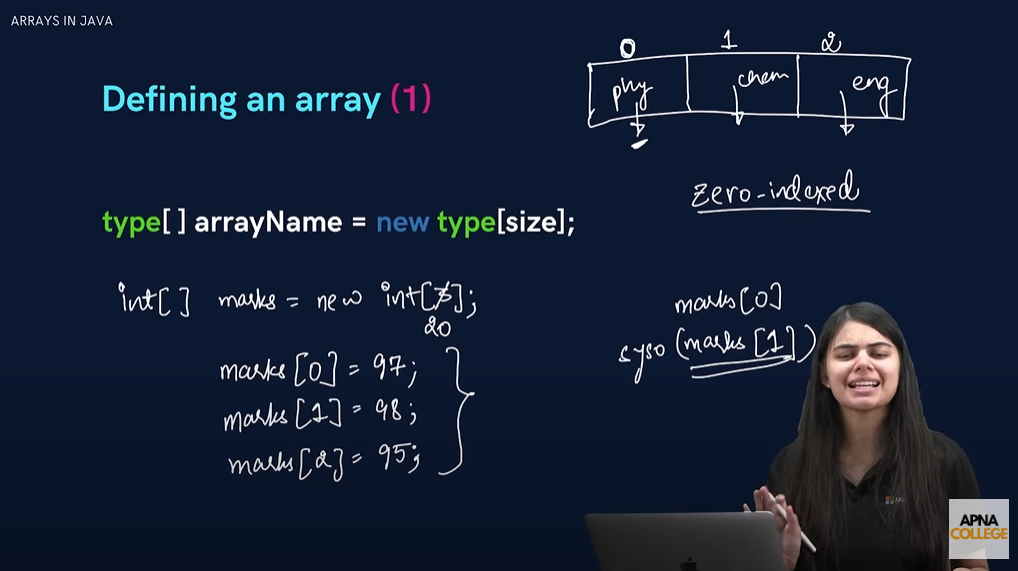 ARRAYS IN JAVA
Defining an array (1)
0 1 2
phy chem eng
zero-indexed
type[ ] arrayName = new type[size];
int[ ] marks = new int[3];
20
marks[0] = 97;
marks[1] = 98;
marks[2] = 95;
marks[0]
syso (marks[1])
APNA
COLLEGE